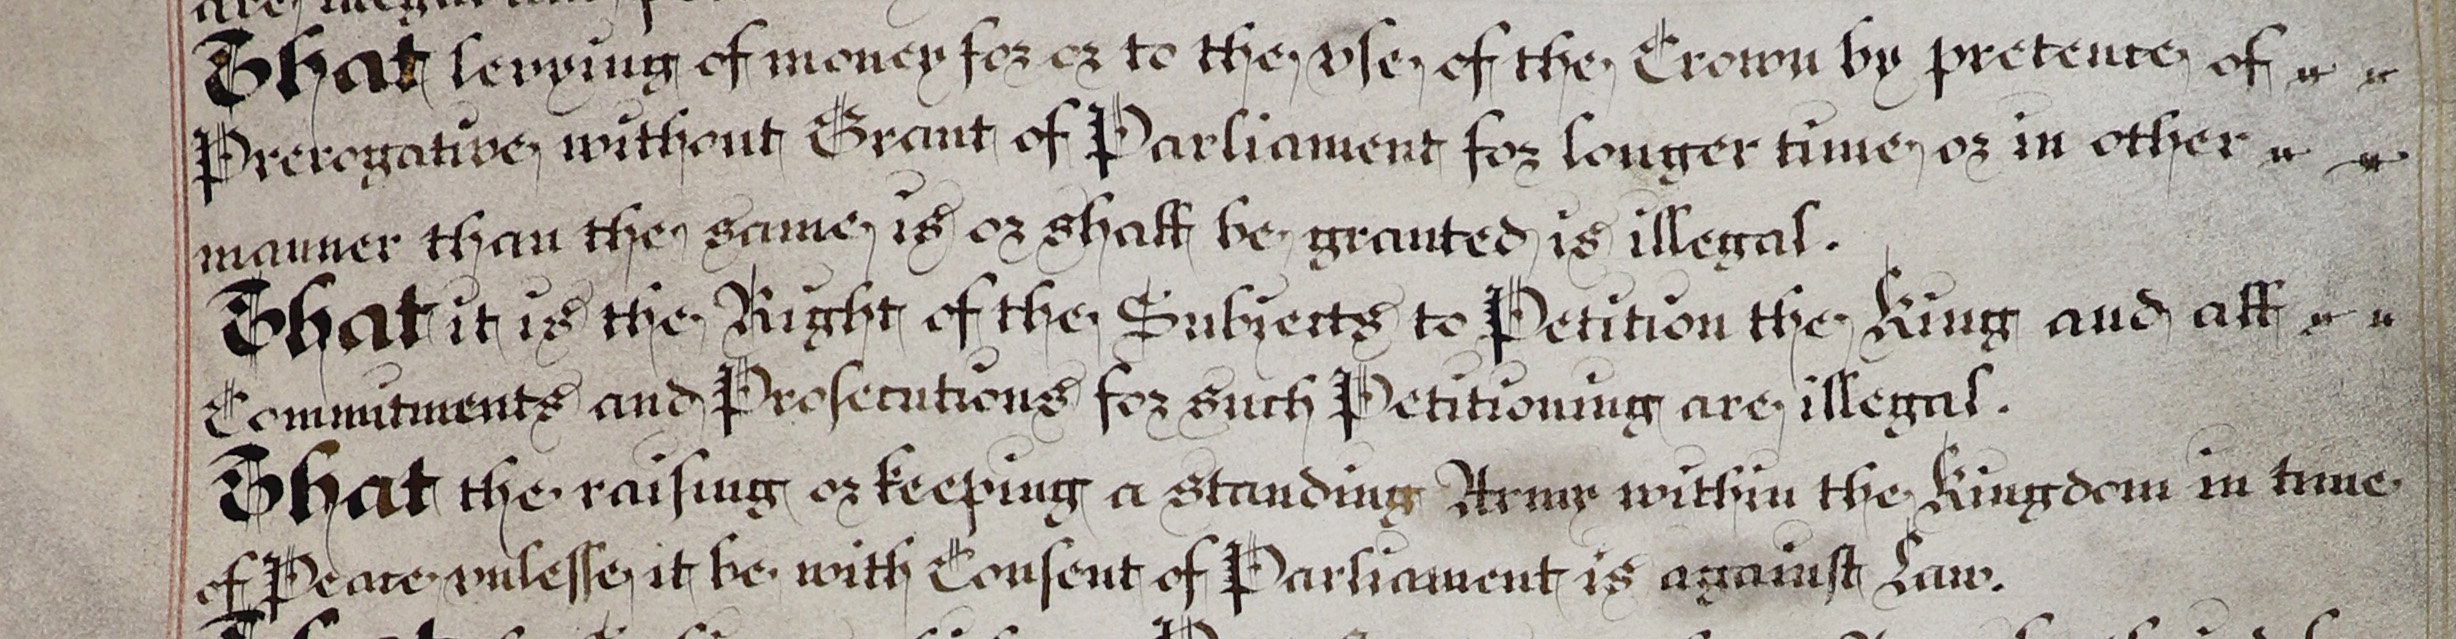 That levying of money for or to the vse of the Crown by pretence of
Prerogative without Grant of Parliament for longer time or in other
manner than the same is or shall be granted is illegal.
That it is the Right of the Subjects to Petition the King and all
Commitments and Prosecutions for such Petitioning are illegal.
That the raising or keeping a standing Army within the Kingdom in time
of Peace vnlesse it be with Consent of Parliament is against Law.